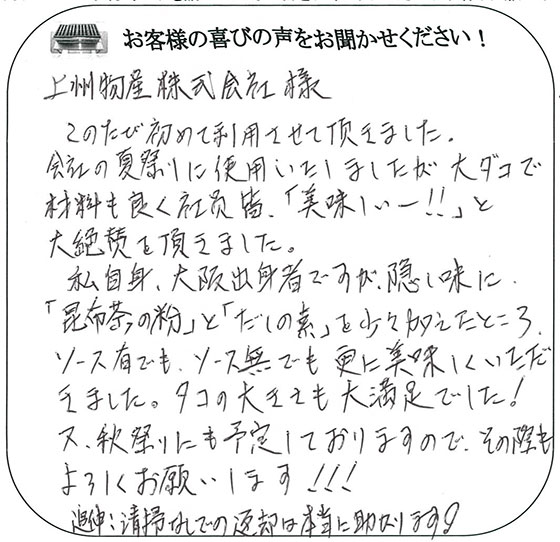 お客様の喜びの声をお聞かせください！
上州物産株式会社 様
このたび初めて利用させて頂きました。
会社の夏祭りに使用いたしましたが 大ダコで
材料も良く社員皆、「美味しいー!!」と
大絶賛を頂きました。
私自身、大阪出身者ですが、隠し味に
「昆布茶の粉」と「だしの素」を少々加えたところ、
ソース有でも、ソース無でも 更に美味しくいただ
きました。タコの大きさも大満足でした！
又、秋祭りにも予定しておりますので、その際も
よろしくお願いします!!!
追伸：清掃なしでの返却は本当に助かります♪